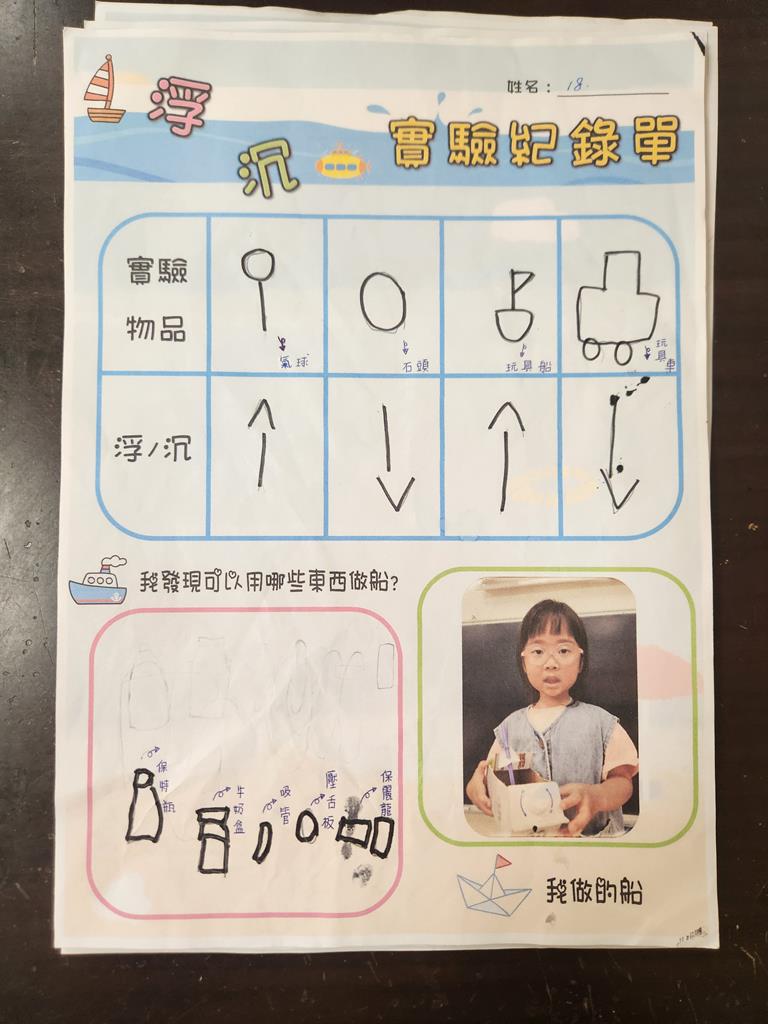 姓名：18.
浮沉
實驗紀錄單
實驗物品
氣球
石頭
玩具船
玩具車
浮/沉
我發現可以用哪些東西做船?
保特瓶
牛奶盒
吸管
壓舌板
保麗龍
我做的船